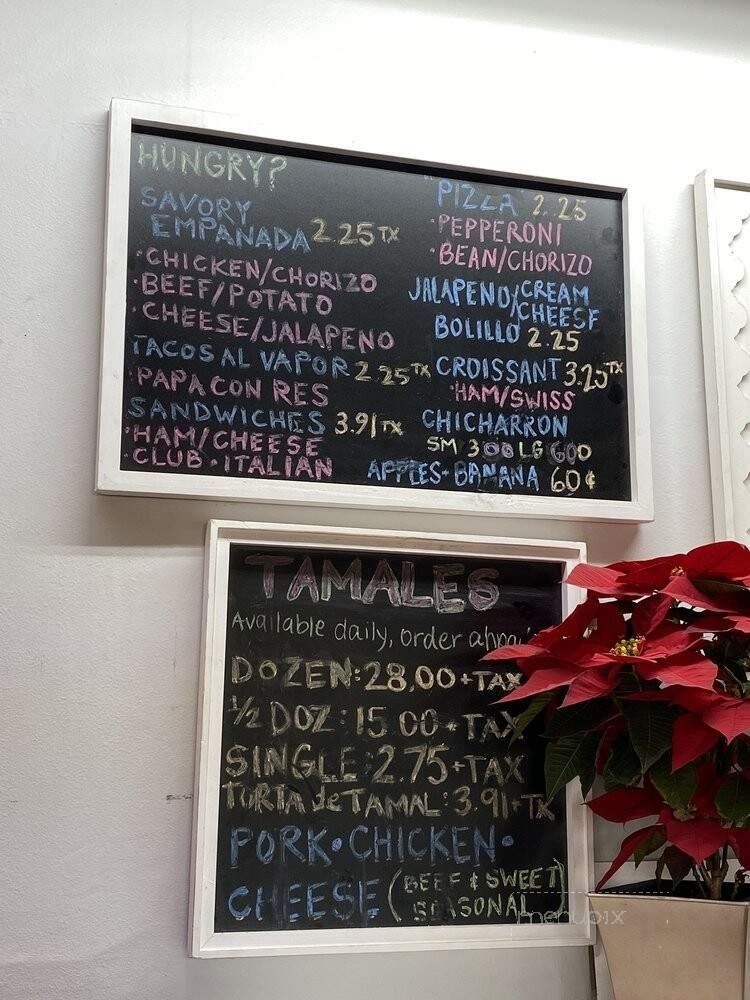 HUNGRY?
SAVORY
EMPANADA 2.25 TX
·CHICKEN/CHORIZO
·BEEF/POTATO
·CHEESE/JALAPENO
TACOS AL VAPOR 2.25 TX
·PAPA CON RES
SANDWICHES 3.91 TX
·HAM/CHEESE
·CLUB·ITALIAN
"PIZZA" 2.25
·PEPPERONI
·BEAN/CHORIZO
JALAPENO/CREAM
CHEESE
BOLILLO 2.25
CROISSANT 3.25 TX
·HAM/SWISS
CHICHARRON
SM 3.00 LG 6.00
APPLES·BANANA 60¢
TAMALES
Available daily, order
DOZEN: 28.00 + TAX
1/2 DOZ: 15.00 + TAX
SINGLE: 2.75 + TAX
TURTA de TAMAL: 3.91 + TX
PORK·CHICKEN·
CHEESE (BEEF & SWEET
SEASONAL)
menupix